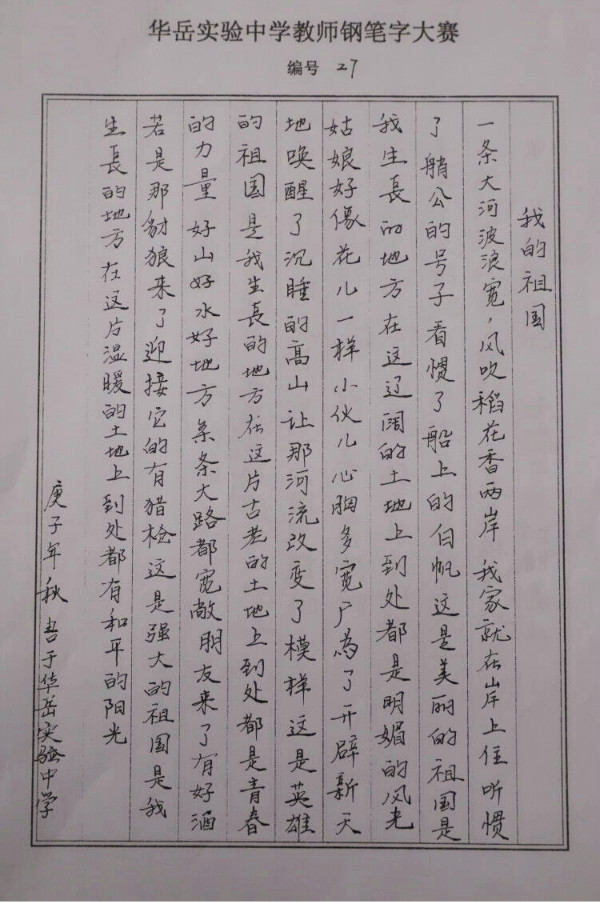 华岳实验中学教师钢笔字大赛
编号 27
我的祖国
一条大河波浪宽，风吹稻花香两岸 我家就在岸上住 听惯
了艄公的号子 看惯了船上的白帆 这是美丽的祖国是
我生長的地方 在这辽阔的土地上 到处都是明媚的风光
姑娘好像花儿一样 小伙儿心胸多宽广 为了开辟新天
地 唤醒了沉睡的高山 让那河流改变了模样 这是英雄
的祖国 是我生長的地方 在这片古老的土地上 到处都是青春
的力量 好山好水好地方 条条大路都宽敞 朋友来了有好酒
若是那豺狼来了 迎接它的有猎枪 这是强大的祖国 是我
生長的地方 在这片温暖的土地上 到处都有和平的阳光
庚子年秋 书于华岳实验中学